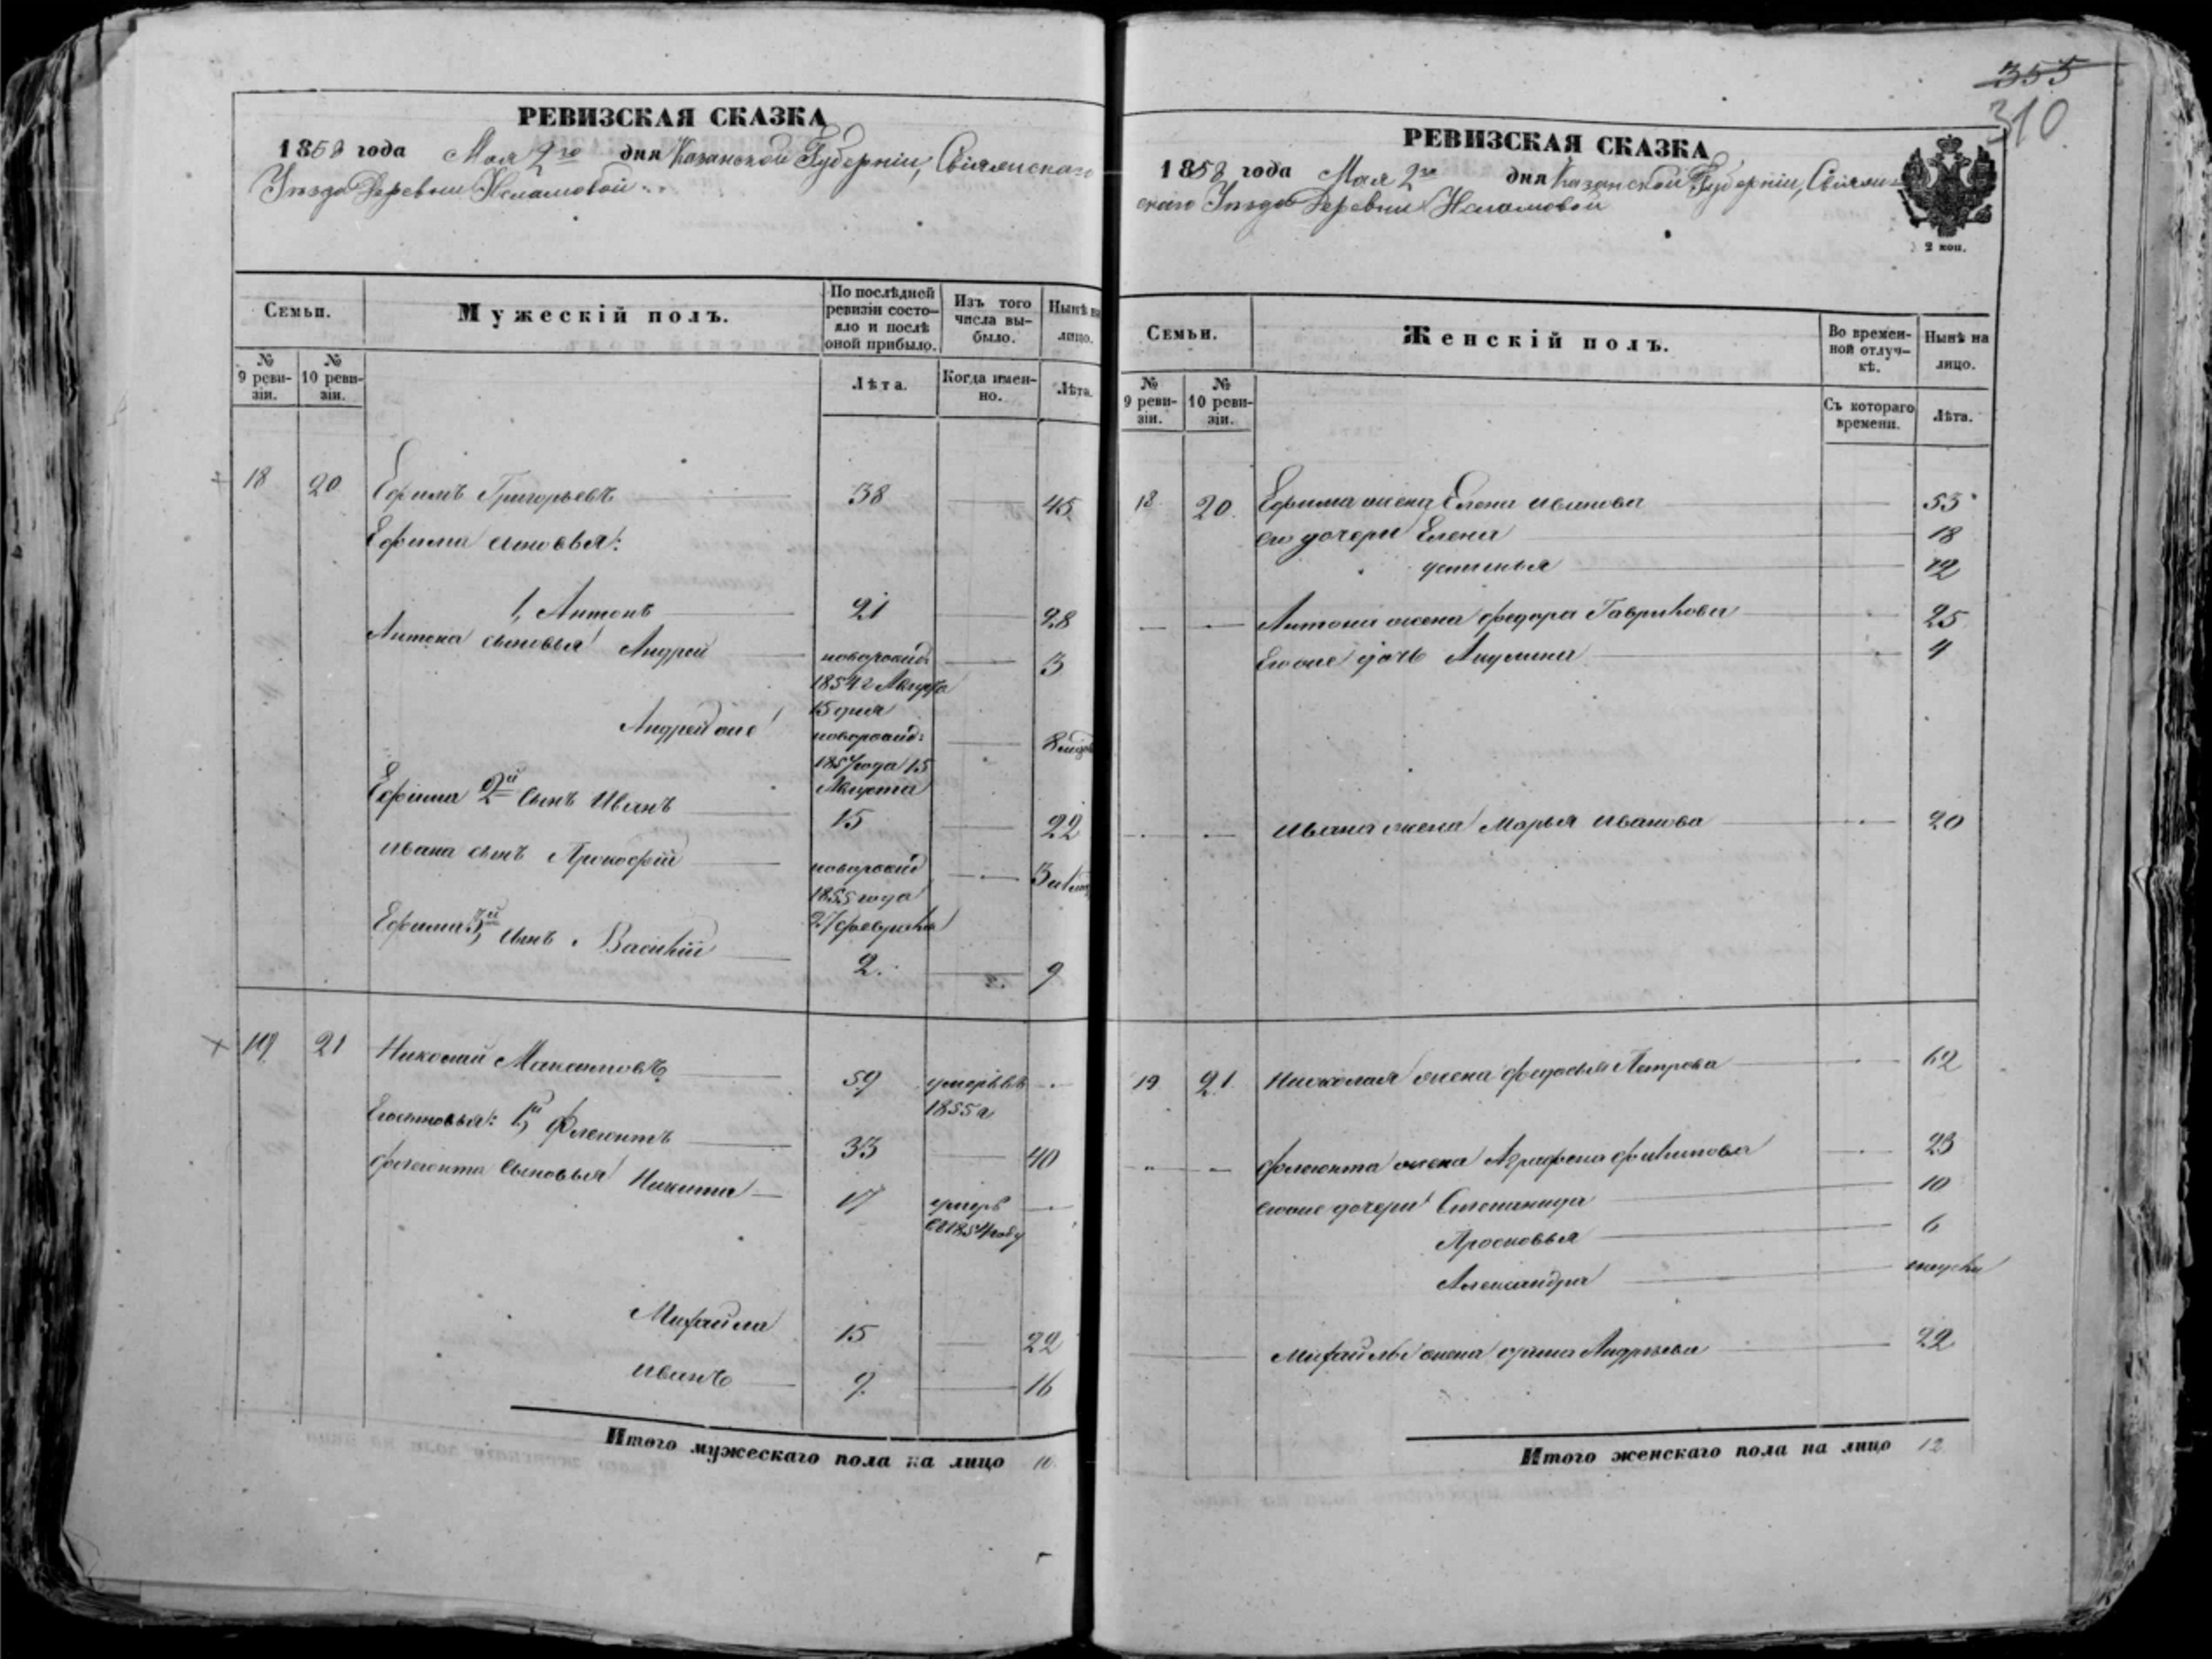 РЕВИЗСКАЯ СКАЗКА
1858 года Мая 2го дня Казанской Губерніи, Свіяжскаго
Уѣзда Деревни Исламовой
Семьи.
Мужескій полъ.
По послѣдней ревизіи состояло и послѣ оной прибыло.
Изъ того числа выбыло.
Нынѣ на лицо.
№ 9 ревизіи.
№ 10 ревизіи.
Лѣта.
Когда именно.
Лѣта.
18 20 Ефимъ Григорьевъ 38 45
Ефима сыновья:
1, Антонъ 21 28
Антона сыновья Андрей новорожд: 3
1854 г Августа
15 дня
Андрей же новорожд:
1857 года 15
Августа
Ефима 2й сынъ Иванъ 15 22
Ивана сынъ Прокофій новорожд
1855 года
27 февраля
Ефима 3й сынъ Василій 2 9
19 21 Николай Максимовъ 59 умеръ въ
1855 г
Его сыновья: 1й Флегонтъ 33 40
Флегонта сыновья Никита 17 умеръ
въ 1854 году
Михайла 15 22
Иванъ 9 16
Итого мужескаго пола на лицо 10.
355
310
РЕВИЗСКАЯ СКАЗКА
1858 года Мая 2го дня Казанской Губерніи, Свіяж
скаго Уѣзда Деревни Исламовой
2 коп.
Семьи.
Женскій полъ.
Во временной отлучкѣ.
Нынѣ на лицо.
№ 9 ревизіи.
№ 10 ревизіи.
Съ котораго времени.
Лѣта.
18 20. Ефима жена Елена Иванова 55
его дочери Елена 18
Устинья 12
Антона жена Федора Гаврилова 25
Его же дочь Акулина 4
Ивана жена Марья Иванова 20
19 21. Николая жена Федосья Петрова 62
Флегонта жена Аграфена Филипова 23
его же дочери Степанида 10
Просковья 6
Александра
Михайлы жена Орина Андреева 22
Итого женскаго пола на лицо 12